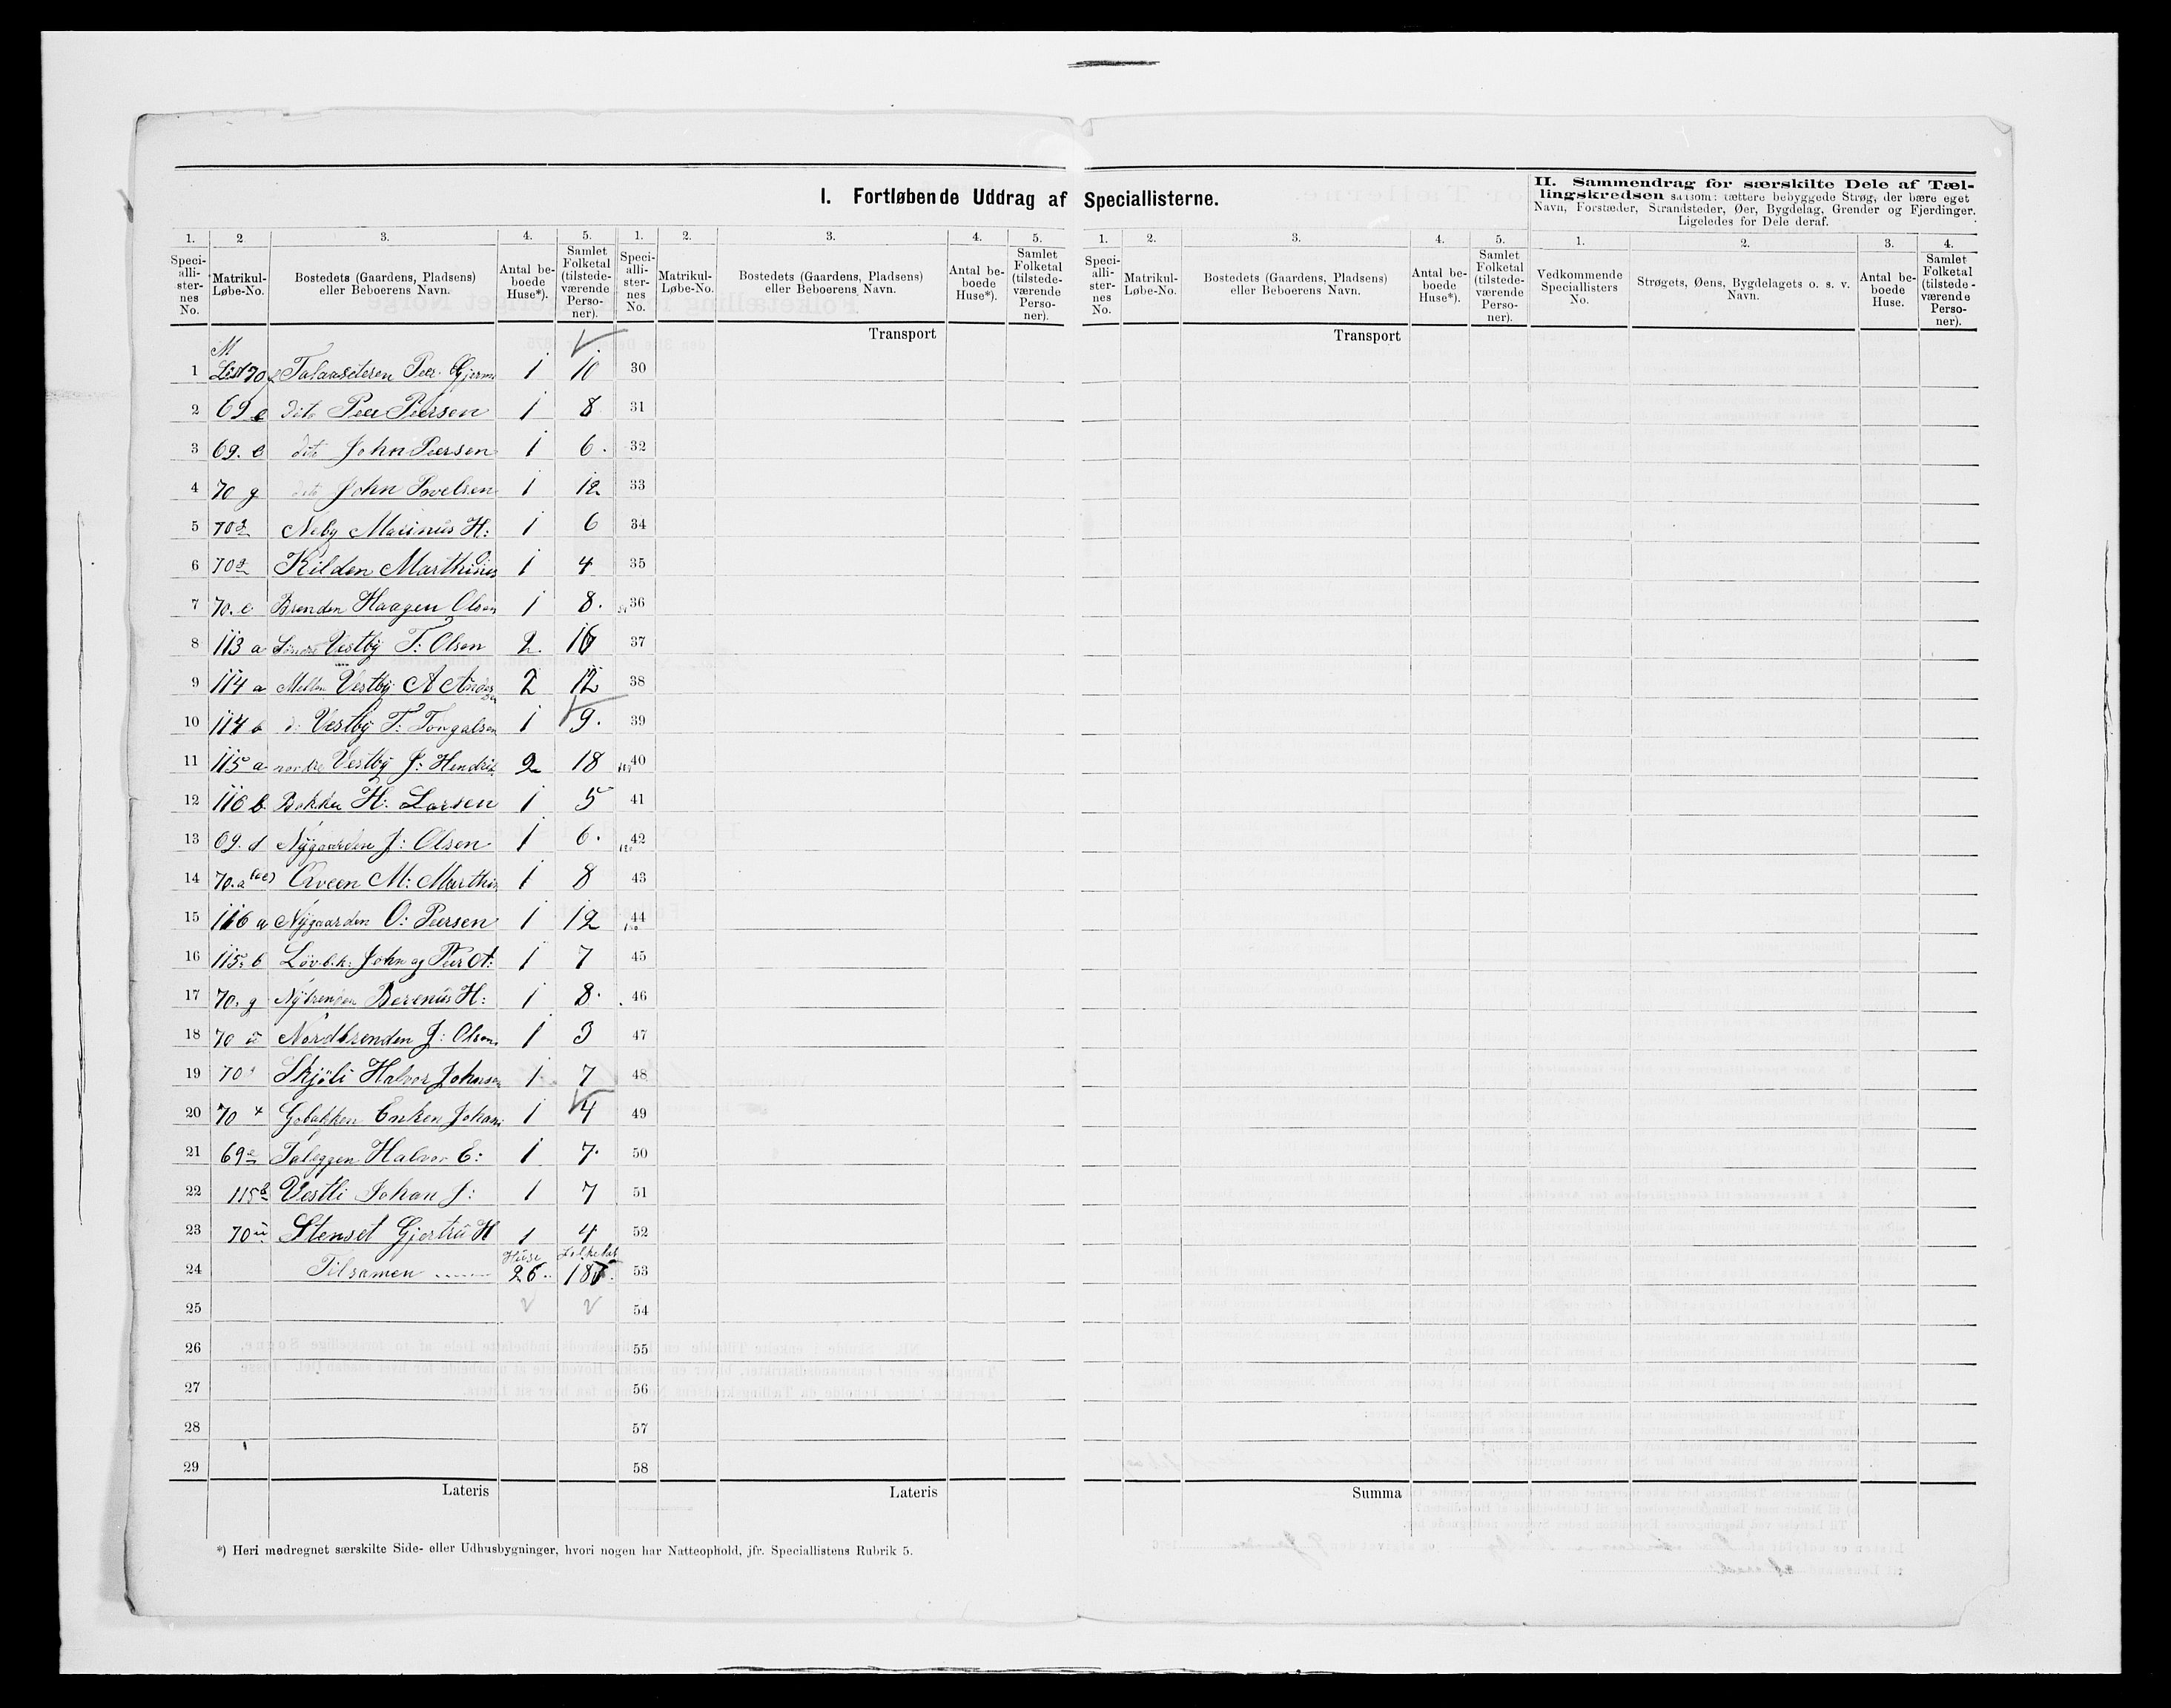 I. Fortløbende Uddrag af Speciallisterne.
II. Sammendrag for særskilte Dele af Tællingskredsen saasom: tættere bebyggede Strøg, der bære eget
Navn, Forstæder, Strandsteder, Øer, Bygdelag, Grender og Fjerdinger.
Ligeledes for Dele deraf.
1. 2 3. 4. 5. 1. 2. 3. 4. 5. 1. 2. 3. 4. 5. 1. 2. 3. 4.
Speciallisternes No. Matrikul-Løbe-No. Bostedets (Gaardens, Pladsens) eller Beboerens Navn. Antal beboede Huse*). Samlet Folketal (tilstedeværende Personer).
Speciallisternes No. Matrikul-Løbe-No. Bostedets (Gaardens, Pladsens) eller Beboerens Navn. Antal beboede Huse*). Samlet Folketal (tilstedeværende Personer).
Speciallisternes No. Matrikul-Løbe-No. Bostedets (Gaardens, Pladsens) eller Beboerens Navn. Antal beboede Huse*). Samlet Folketal (tilstedeværende Personer).
Vedkommende Speciallisters No. Strøgets, Øens, Bygdelagets o. s. v. Navn. Antal beboede Huse. Samlet Folketal (tilstedeværende Personer).
Transport Transport
M
1 70 Peer 1 10 30
2 69 e dito Peer Peersen 1 8 31
3 69. e dito John Peersen 1 6. 32
4 70 g dito John Povelsen 1 12 33
5 70 Neby Marinus H: 1 6 34
6 70 Kilden Marthinus 1 4 35
7 70. e Brenden Haagen Olsen 1 8. 36
8 113 a Søndre Vestby T: Olsen 2. 16 37
9 114 a Mellm Vestby A Andersen 2 12 38
10 114 b d: Vestby T: 1 9. 39
11 115 a nordre Vestby J: Hendrik 2 18 40
12 116 b. Bakken H. Larsen 1 5 41
13 69. d Nygaarden J: Olsen 1 6. 42
14 70. a M: Marthin 1 8 43
15 116 a Nygaarden O: Peersen 1 12 44
16 115. b John og Peer 1 7 45
17 70. g Nybrenden Berenus H: 1 8. 46
18 70 Nordbrenden J: Olsen. 1 3 47
19 70 Skjøli Halvor Johnsen 1 7 48
20 70 Enken Johan 1 4 49
21 69 e Halvor E: 1 7. 50
22 115 b Vestli Johan J: 1 7 51
23 70 u Stenset H 1 4 52
Huse Folketal
24 Tilsamen 26. 187. 53
25 54
26 55
27 56
28 57
29 58
Lateris Lateris Summa
*) Heri medregnet særskilte Side- eller Udhusbygninger, hvori nogen har Natteophold, jfr. Speciallistens Rubrik 5.